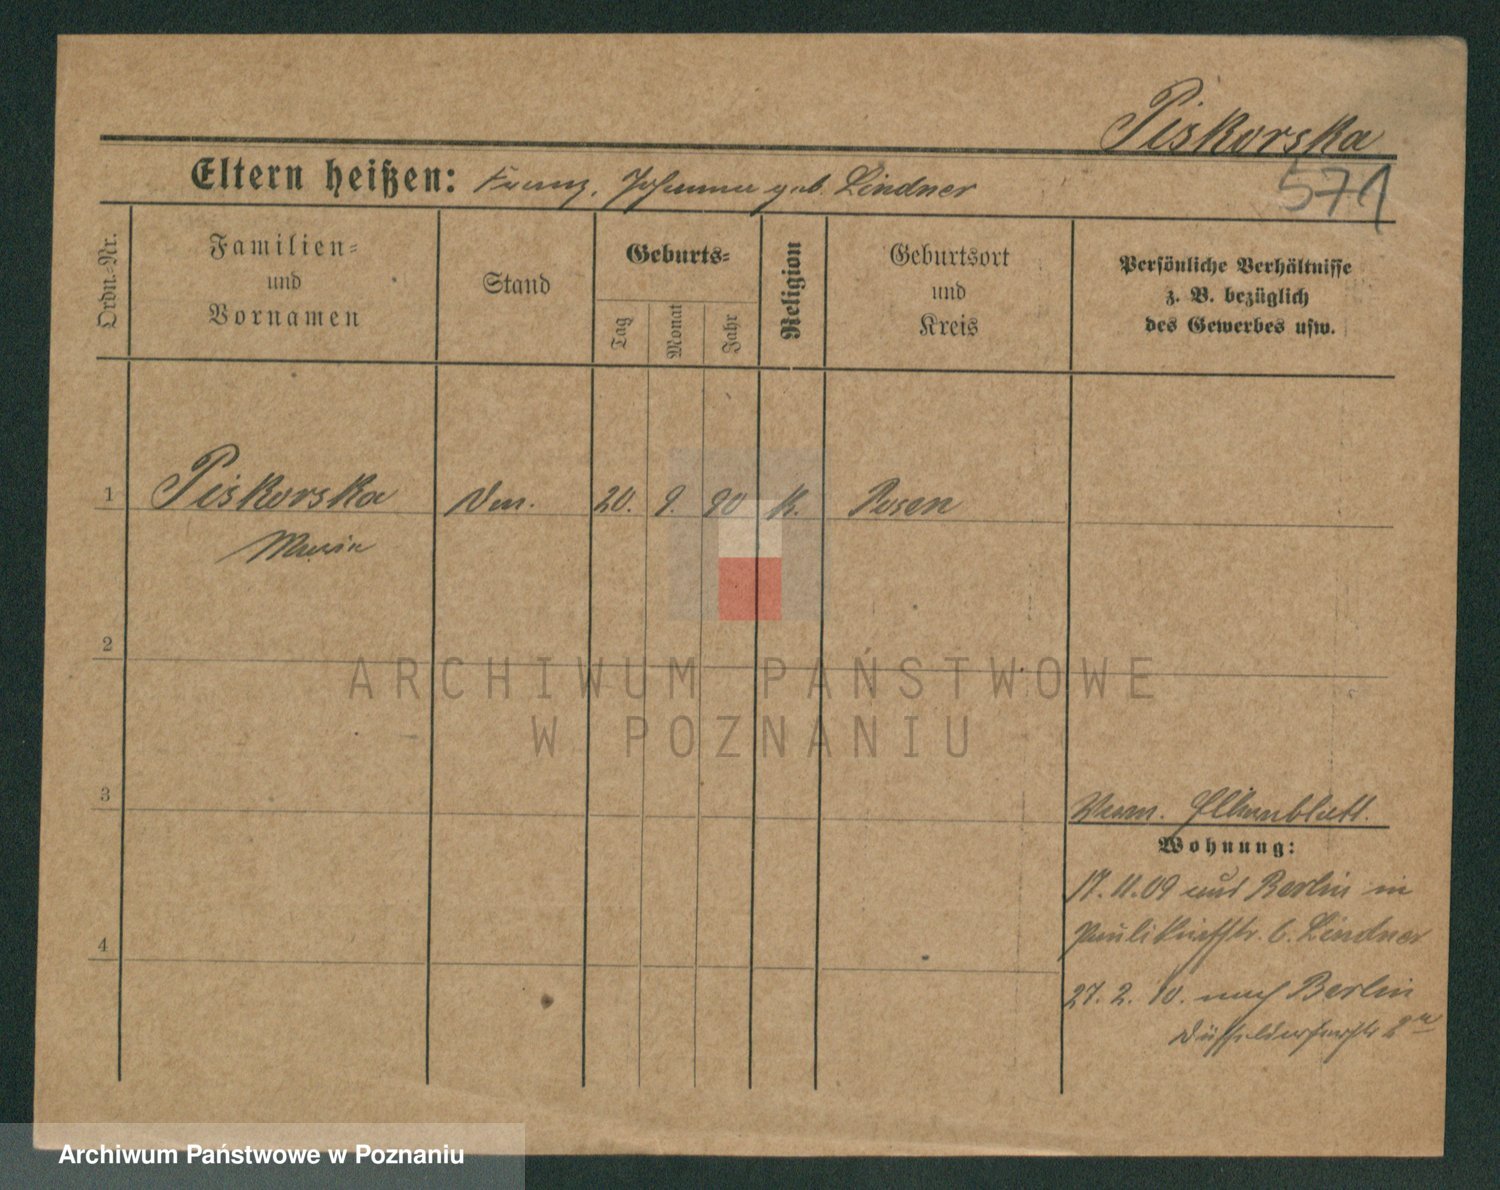 Piskorska
571
Eltern heißen: Franz, Johanna geb. Lindner
Ordn.-Nr.
Familien-
und
Vornamen
Stand
Geburts-
Tag
Monat
Jahr
Religion
Geburtsort
und
Kreis
Persönliche Verhältnisse
z. B. bezüglich
des Gewerbes usw.
1 Piskorska 20. 9. 90 K. Posen
Maria
2
ARCHIWUM PAŃSTWOWE
W POZNANIU
3
Elternblatt.
Wohnung:
17.11.09 aus Berlin in
Paulikirchstr. 6. Lindner
4
27. 2. 10. nach Berlin
Düsseldorferstr
Archiwum Państwowe w Poznaniu